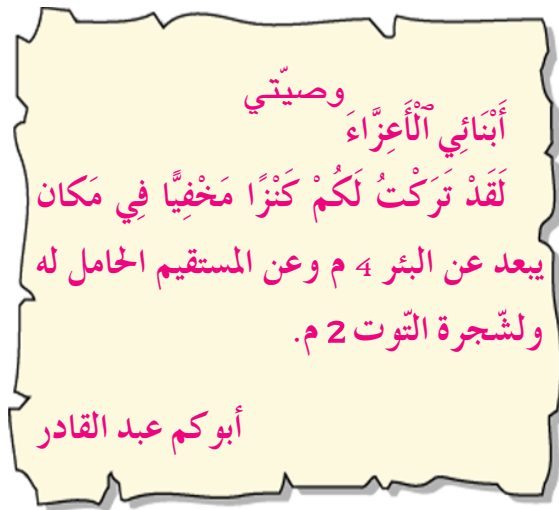 وصيّتي
أَبْنَائِي ٱلْأَعِزَّاءَ
لَقَدْ تَرَكْتُ لَكُمْ كَنْزًا مَخْفِيًّا فِي مَكان
يبعد عن البئر 4 م وعن المستقيم الحامل له
ولشّجرة التّوت 2 م.
أبوكم عبد القادر